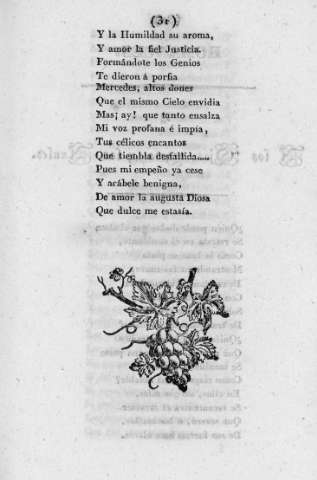 (31)
Y la Humildad su aroma,
Y amor la fiel Justicia.
Formándote los Genios
Te dieron á porfia
Mercedes, altos dones
Que el mismo Cielo envidia
Mas; ay! que tanto ensalza
Mi voz profana é impía,
Tus célicos encantos
Que tiembla desfallida.....
Pues mi empeño ya cese
Y acábele benigna,
De amor la augusta Diosa
Que dulce me estasía.